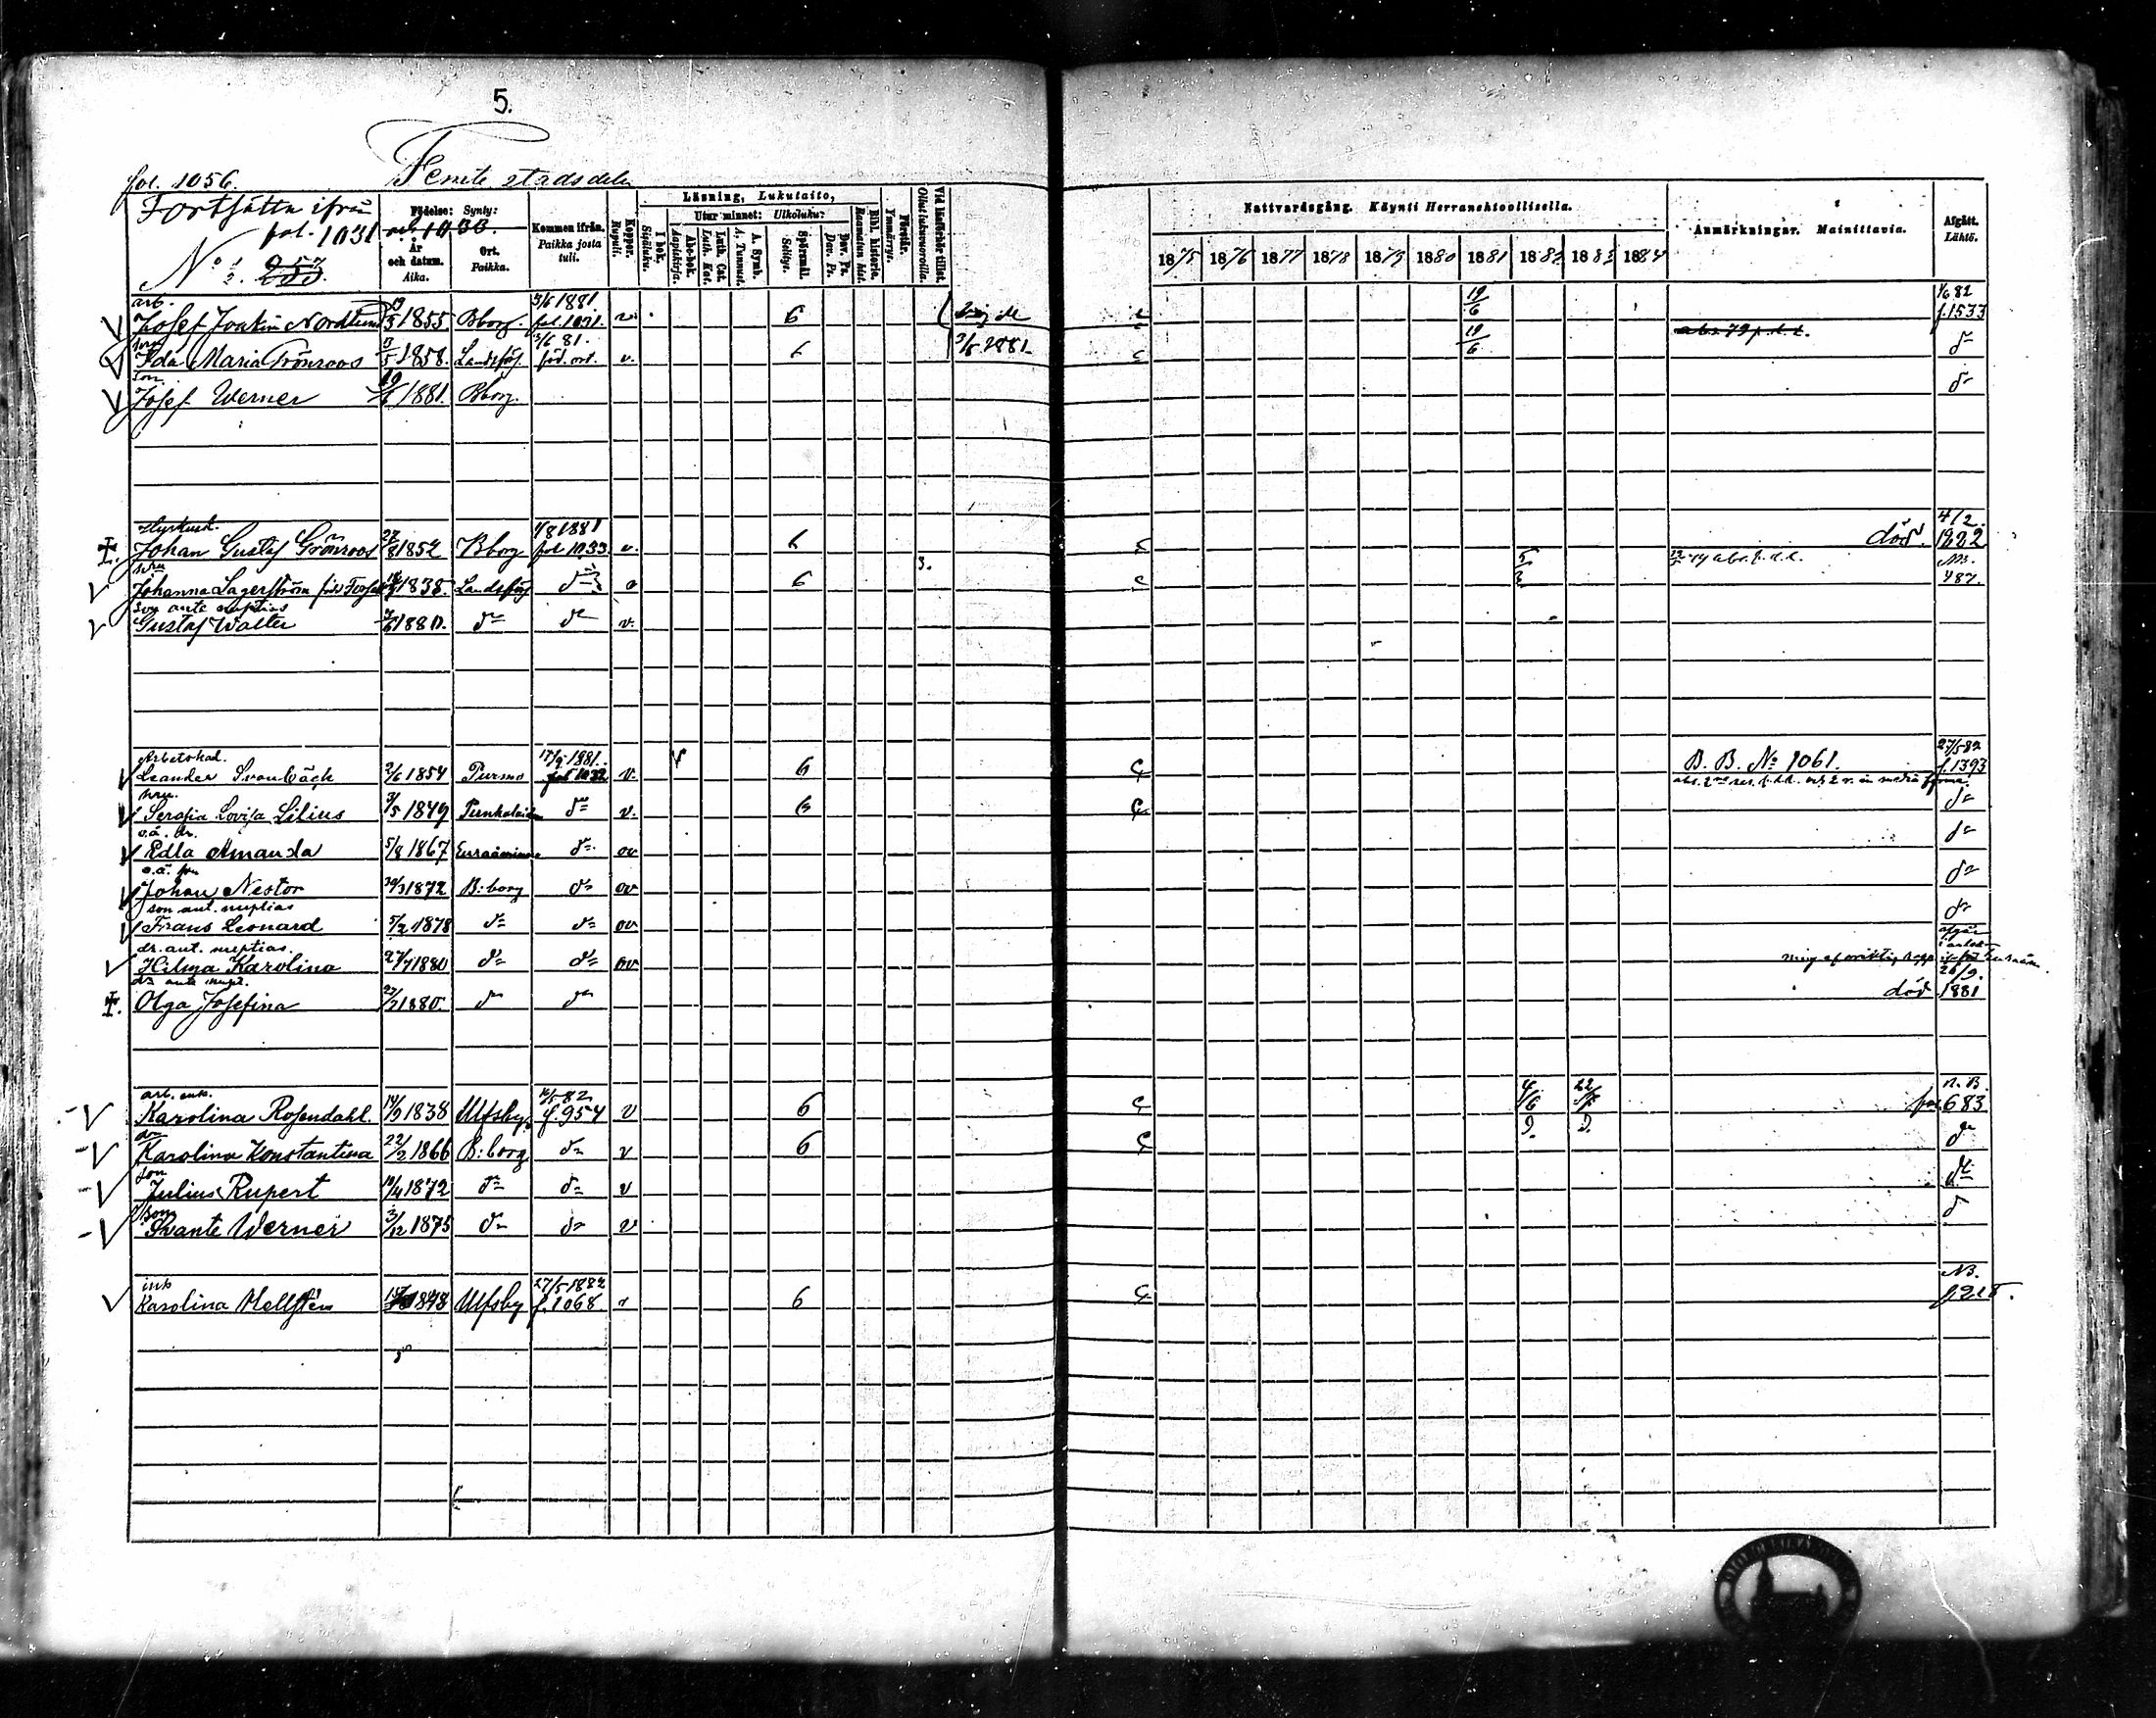 5.
Femte stadsdelen
fol. 1056.
Fortsättn ifrån
fol. 1031 och 1033.
N:o 1/2. 253.
Födelse: Synty:
År och datum. Aika.
Ort. Paikka.
Kommen ifrån. Paikka josta tuli.
Koppor. Rupuli.
Läsning, Lukutaito,
I bok. Sisäluku.
Utur minnet: Ulkoluku:
Abc-bok. Aapiskirja.
Luth. Cat. Luth. Kat.
A. Symb. A. Tunnust.
Spörsmål. Selitys.
Dav. Ps. Dav. Ps.
Bibl. historia. Raamatun hist.
Förstår. Ymmärrys.
Vid läsförhör tillst. Ollut lukuvuoroilla.
Nattvardsgång. Käynti Herranehtoollisella.
1875 1876 1877 1878 1879 1880 1881 1882 1883 1884
Anmärkningar. Mainittavia.
Afgått. Lähtö.
arb. 3/6 1881 19/6 1/6 82
Josef Joakim Nordlund 19/3 1855 Bborg. fol. 1031. v. 6 f. 1533
hru 3/6 81. 19/6 abs. 79 p.d.d.
Ida Maria Grönroos 1858. Landsförs. föd. ort. v. 6 3/6 1881. d:o
son
Josef Werner 19/6 1881. Bborg. d:o
1/8 1881 4/2.
Johan Gustaf Grönroos 27/8 1852 Bborg fol 1033 v. 6 död. 1882
hru 3. 5/3 NB.
Johanna Lagerström 1838. Landsförs d:o 6 487.
son ante nuptias
Gustaf Walter 1880. d:o d:o v.
Arbetskarl. 17/9 1881. v B. B. No 1061. 27/5 82
Leander Svanbäck 2/6 1854 Purmo fol 1032 v. 6 f. 1393
hru.
Serafia Lovisa Lilius 3/5 1849 Punkalaidun d:o v. 6 d:o
o.ä. dr.
Edla Amanda 5/8 1867 Euraåminne d:o ov d:o
o.ä. son
Johan Nestor 30/3 1872 B:borg d:o ov d:o
son ant. nuptias
Frans Leonard 5/2 1878 d:o d:o ov d:o
dr. ant. nuptias.
Hilma Karolina 1880 d:o d:o ov
dr ante nupt. 26/9.
Olga Josefina 1880. d:o d:o död 1881
arb. enk. 16/5 82 4/6 22/ n. B.
Karolina Rosendahl. 14/9 1838 Ulfsby f. 954 v 6 fol 683
dr
Karolina Konstantina 22/2 1866 B:borg d:o v 6 d:o
son
Julius Rupert 10/4 1872 d:o d:o v d:o
son
Svante Werner 3/12 1875 d:o d:o v d:o
inh 27/5 1882 NB.
Karolina Hellsten 1848 Ulfsby f. 1068 6